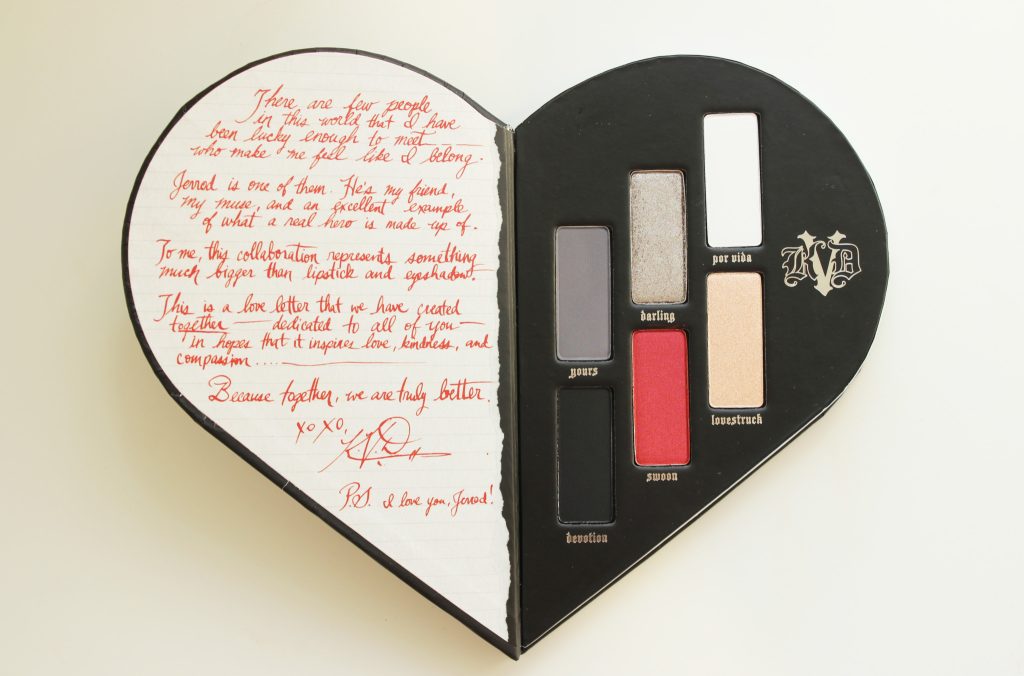 There are few people
in this world that I have
been lucky enough to meet —
who make me feel like I belong.
Jerred is one of them. He's my friend,
my muse, and an excellent example
of what a real hero is made up of.
To me, this collaboration represents something
much bigger than lipstick and eyeshadow.
This is a love letter that we have created
together — dedicated to all of you —
in hopes that it inspires love, kindness, and
compassion....
Because together, we are truly better.
xoxo,
K.V.D
P.S. I love you, Jerred!
por vida
darling
yours
lovestruck
swoon
devotion
KVD